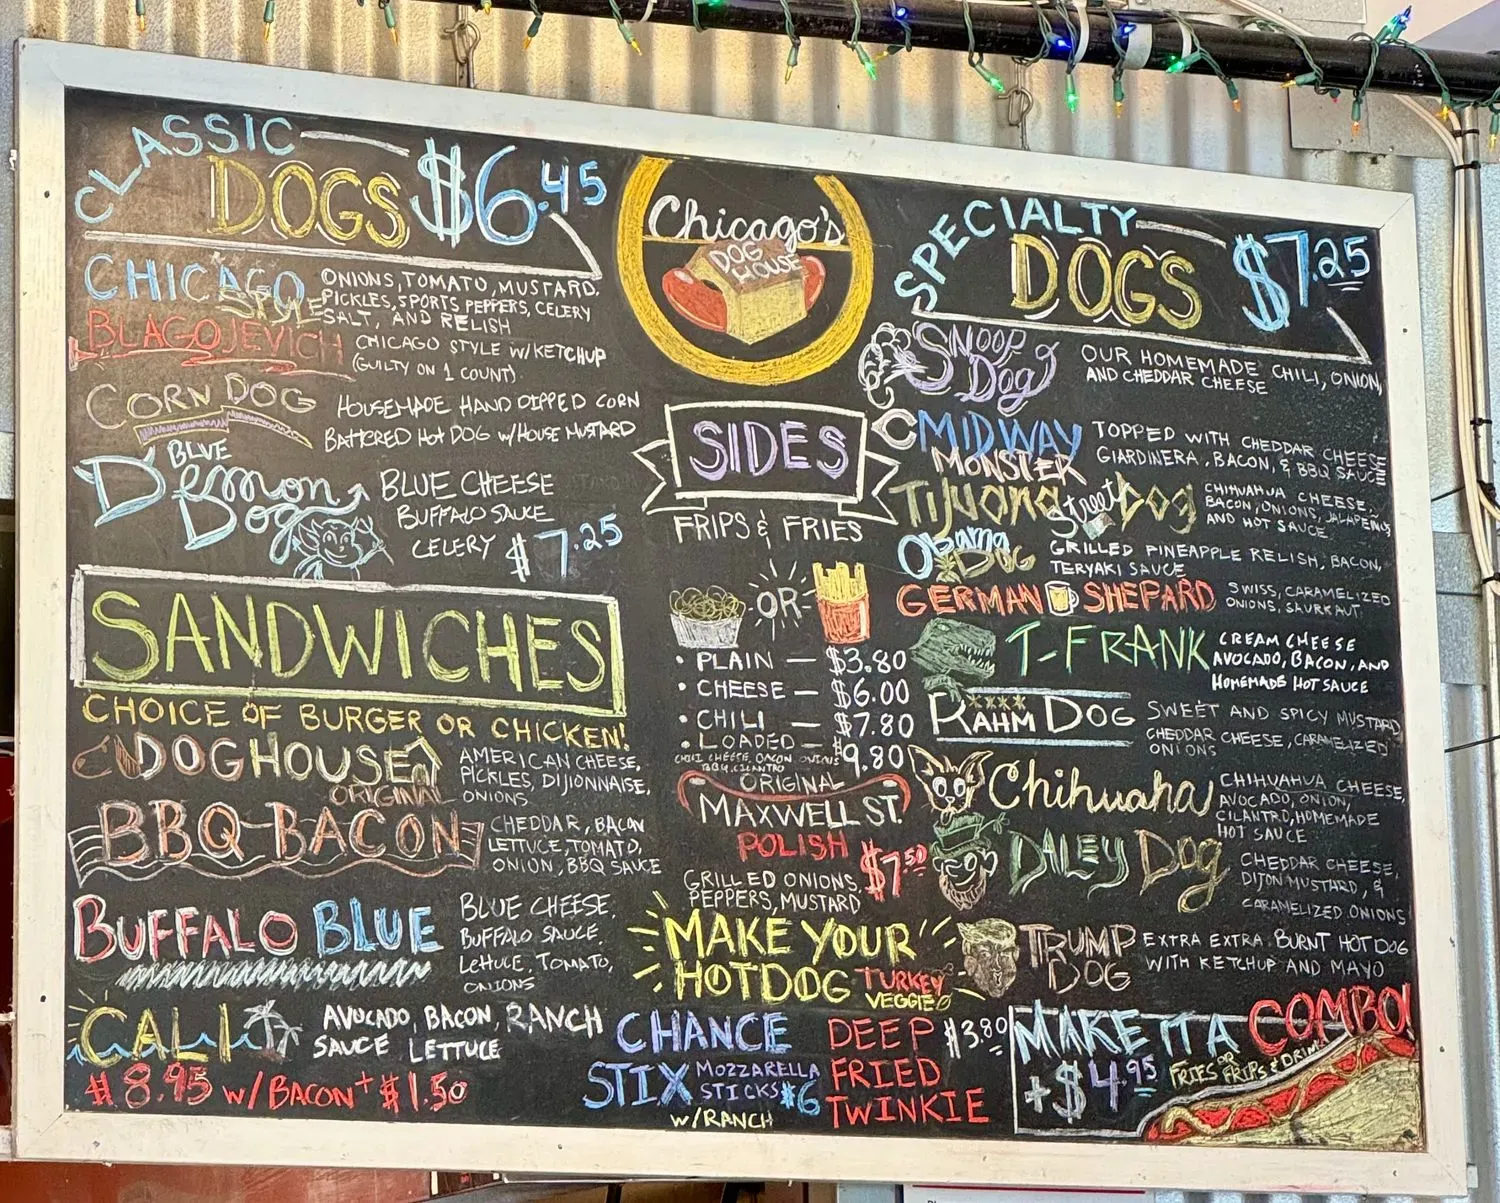 CLASSIC
DOGS $6.45
CHICAGO
STYLE
ONIONS, TOMATO, MUSTARD,
PICKLES, SPORTS PEPPERS, CELERY
SALT, AND RELISH
BLAGOJEVICH
CHICAGO STYLE W/KETCHUP
(GUILTY ON 1 COUNT)
CORN DOG
HOUSEMADE HAND DIPPED CORN
BATTERED HOT DOG W/HOUSE MUSTARD
BLUE
Demon
Dog
BLUE CHEESE
BUFFALO SAUCE
CELERY $7.25
SANDWICHES
CHOICE OF BURGER OR CHICKEN!
DOGHOUSE
ORIGINAL
AMERICAN CHEESE,
PICKLES, DIJIONNAISE,
ONIONS
BBQ-BACON
CHEDDAR, BACON
LETTUCE, TOMATO,
ONION, BBQ SAUCE
BUFFALO BLUE
BLUE CHEESE,
BUFFALO SAUCE,
LETTUCE, TOMATO,
ONIONS
CALI
AVOCADO, BACON, RANCH
SAUCE LETTUCE
$8.95 W/BACON + $1.50
Chicago's
DOG
HOUSE
SIDES
FRIPS & FRIES
OR
• PLAIN — $3.80
• CHEESE — $6.00
• CHILI — $7.80
• LOADED — $9.80
CHILI, CHEESE, BACON, ONIONS
BBQ, CILANTRO
ORIGINAL
MAXWELL ST.
POLISH $7.50
GRILLED ONIONS,
PEPPERS, MUSTARD
MAKE YOUR
HOTDOG TURKEY
VEGGIE
CHANCE
STIX MOZZARELLA
STICKS $6
W/RANCH
DEEP $3.80
FRIED
TWINKIE
SPECIALTY
DOGS $7.25
SNOOP
Dog
OUR HOMEMADE CHILI, ONION,
AND CHEDDAR CHEESE
MIDWAY
MONSTER
TOPPED WITH CHEDDAR CHEESE
GIARDINERA, BACON, & BBQ SAUCE
TIJUANA Street Dog
CHIHUAHUA CHEESE,
BACON, ONIONS, JALAPENOS
AND HOT SAUCE
Obama
DOG
GRILLED PINEAPPLE RELISH, BACON,
TERYAKI SAUCE
GERMAN SHEPARD
SWISS, CARAMELIZED
ONIONS, SAURKAUT,
T-FRANK
CREAM CHEESE
AVOCADO, BACON, AND
HOMEMADE HOT SAUCE
RAHM DOG
SWEET AND SPICY MUSTARD,
CHEDDAR CHEESE, CARAMELIZED
ONIONS
Chihuaha
CHIHUAHUA CHEESE,
AVOCADO, ONION,
CILANTRO, HOMEMADE
HOT SAUCE
DALEY DOG
CHEDDAR CHEESE,
DIJON MUSTARD, &
CARAMELIZED ONIONS
TRUMP
DOG
EXTRA EXTRA BURNT HOT DOG
WITH KETCHUP AND MAYO
MAKE IT A COMBO!
+$4.95 FRIES OR FRIPS & DRINK